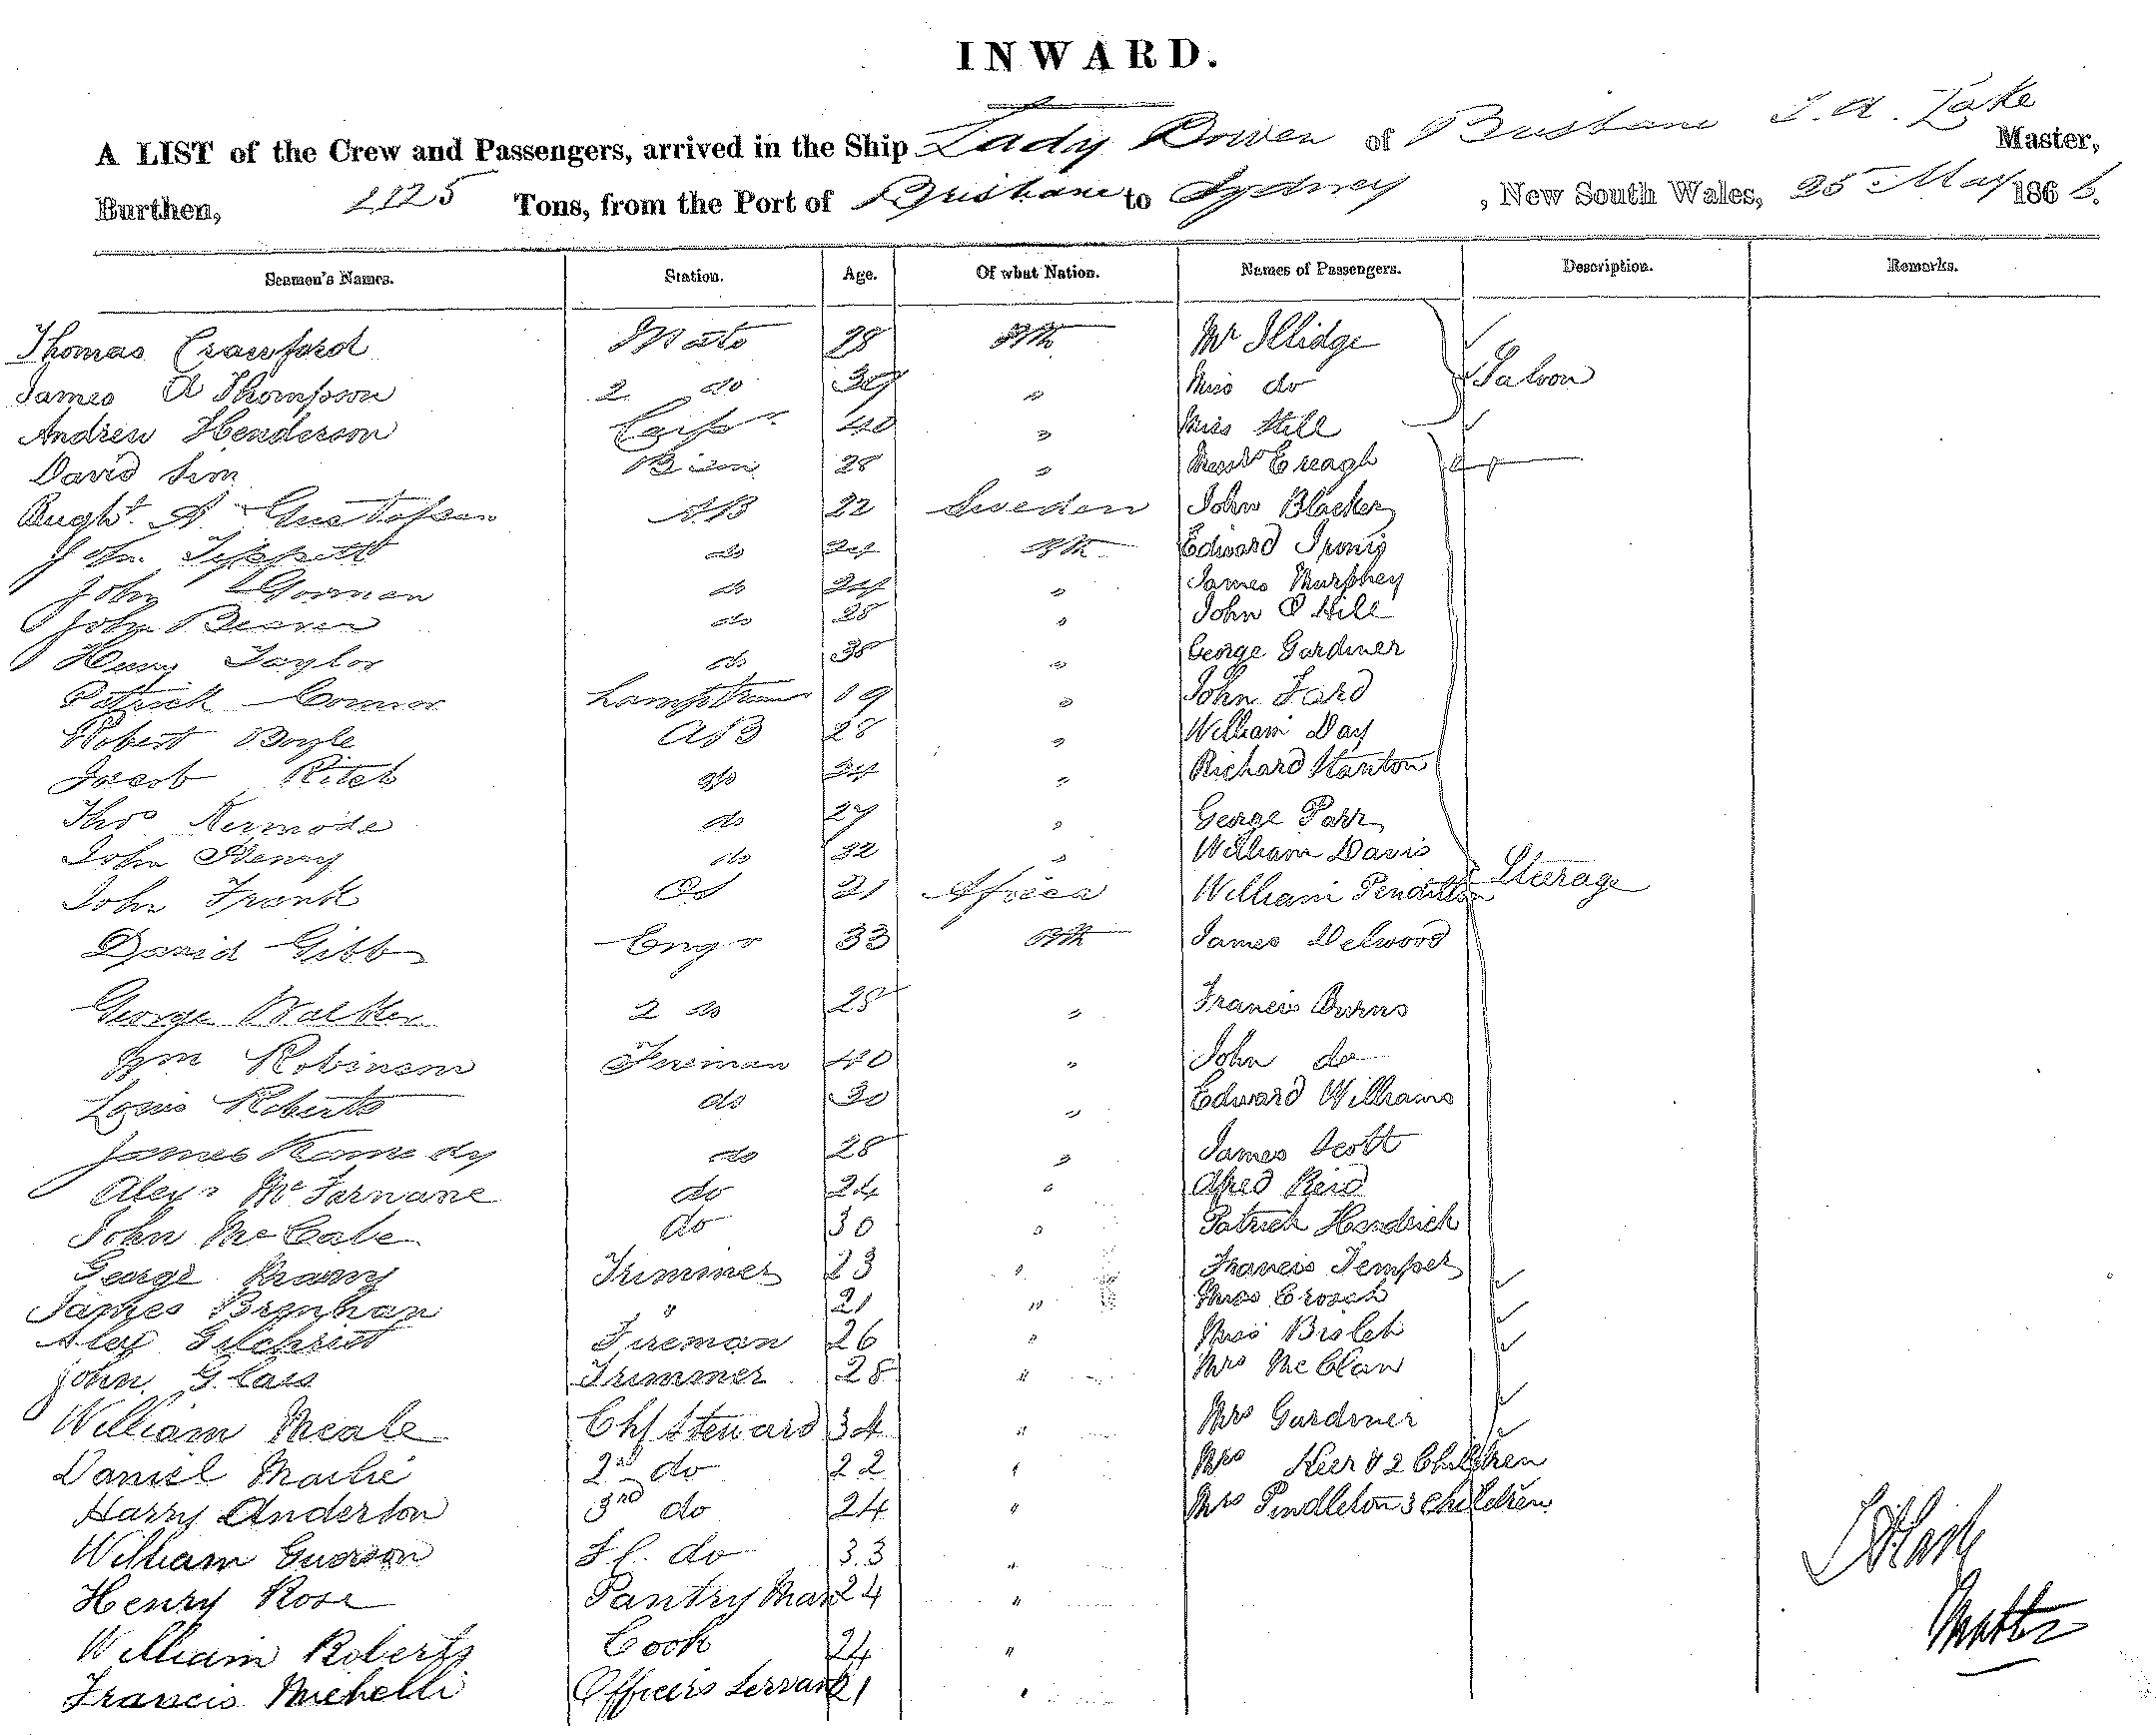 INWARD.
A LIST of the Crew and Passengers, arrived in the Ship Lady Bowen of Brisbane Master,
Burthen, 1125 Tons, from the Port of Brisbane to Sydney, New South Wales, 25 May 1866.
Seamen's Names. Station. Age. Of what Nation. Names of Passengers. Description. Remarks.
Thomas Crawford Mate 28 Mr Illidge
James A Thompson 2 do " Miss do Saloon
Andrew Henderson 40 " Miss Hill
David Sim 28 " Creagh
A Gustafson AB 22 Sweden John Blacker
John Tippett do 24 Edward
John Gorman do 24 " James Murphey
John Beaven do 25 " John O Hill
Henry Taylor do 35 " George Gardiner
Patrick Connor Lamptrimr 19 " John Ford
Robert Boyle AB 28 " William Day
Jacob do 24 " Richard Stanton
Thos Kermode do 27 " George Parr
John Henry do 32 " William Davis
John Frank OS 21 Africa William Pendleton Sterage
David Gibb Engr 33 James Delwood
George Walker 2 do 25 " Francis Burns
Robinson Fireman 40 " John do
Louis Roberts do 30 " Edward Williams
James Kennedy do 28 " James Scott
Alexr McFarnane do 24 " Alfred Reid
John McCabe do 30 " Patrick Hendrick
George Trimmer 23 " Francis Temper
James Brenhan " 21 "
Alex Gilchrist Fireman 26 " Miss
John Glass Trimmer 28 " Mrs McClan
William Meale Chf Steward 34 " Mrs Gardiner
Daniel 2nd do 22 " Mrs Keer & 2 Children
Harry Anderton 3rd do 24 " Mrs Pendleton 3 Children
William do 33 "
Henry Rose Pantry Man 24 "
William Roberts Cook 24 "
Francis Michelli Officers Servant 21 "
Master